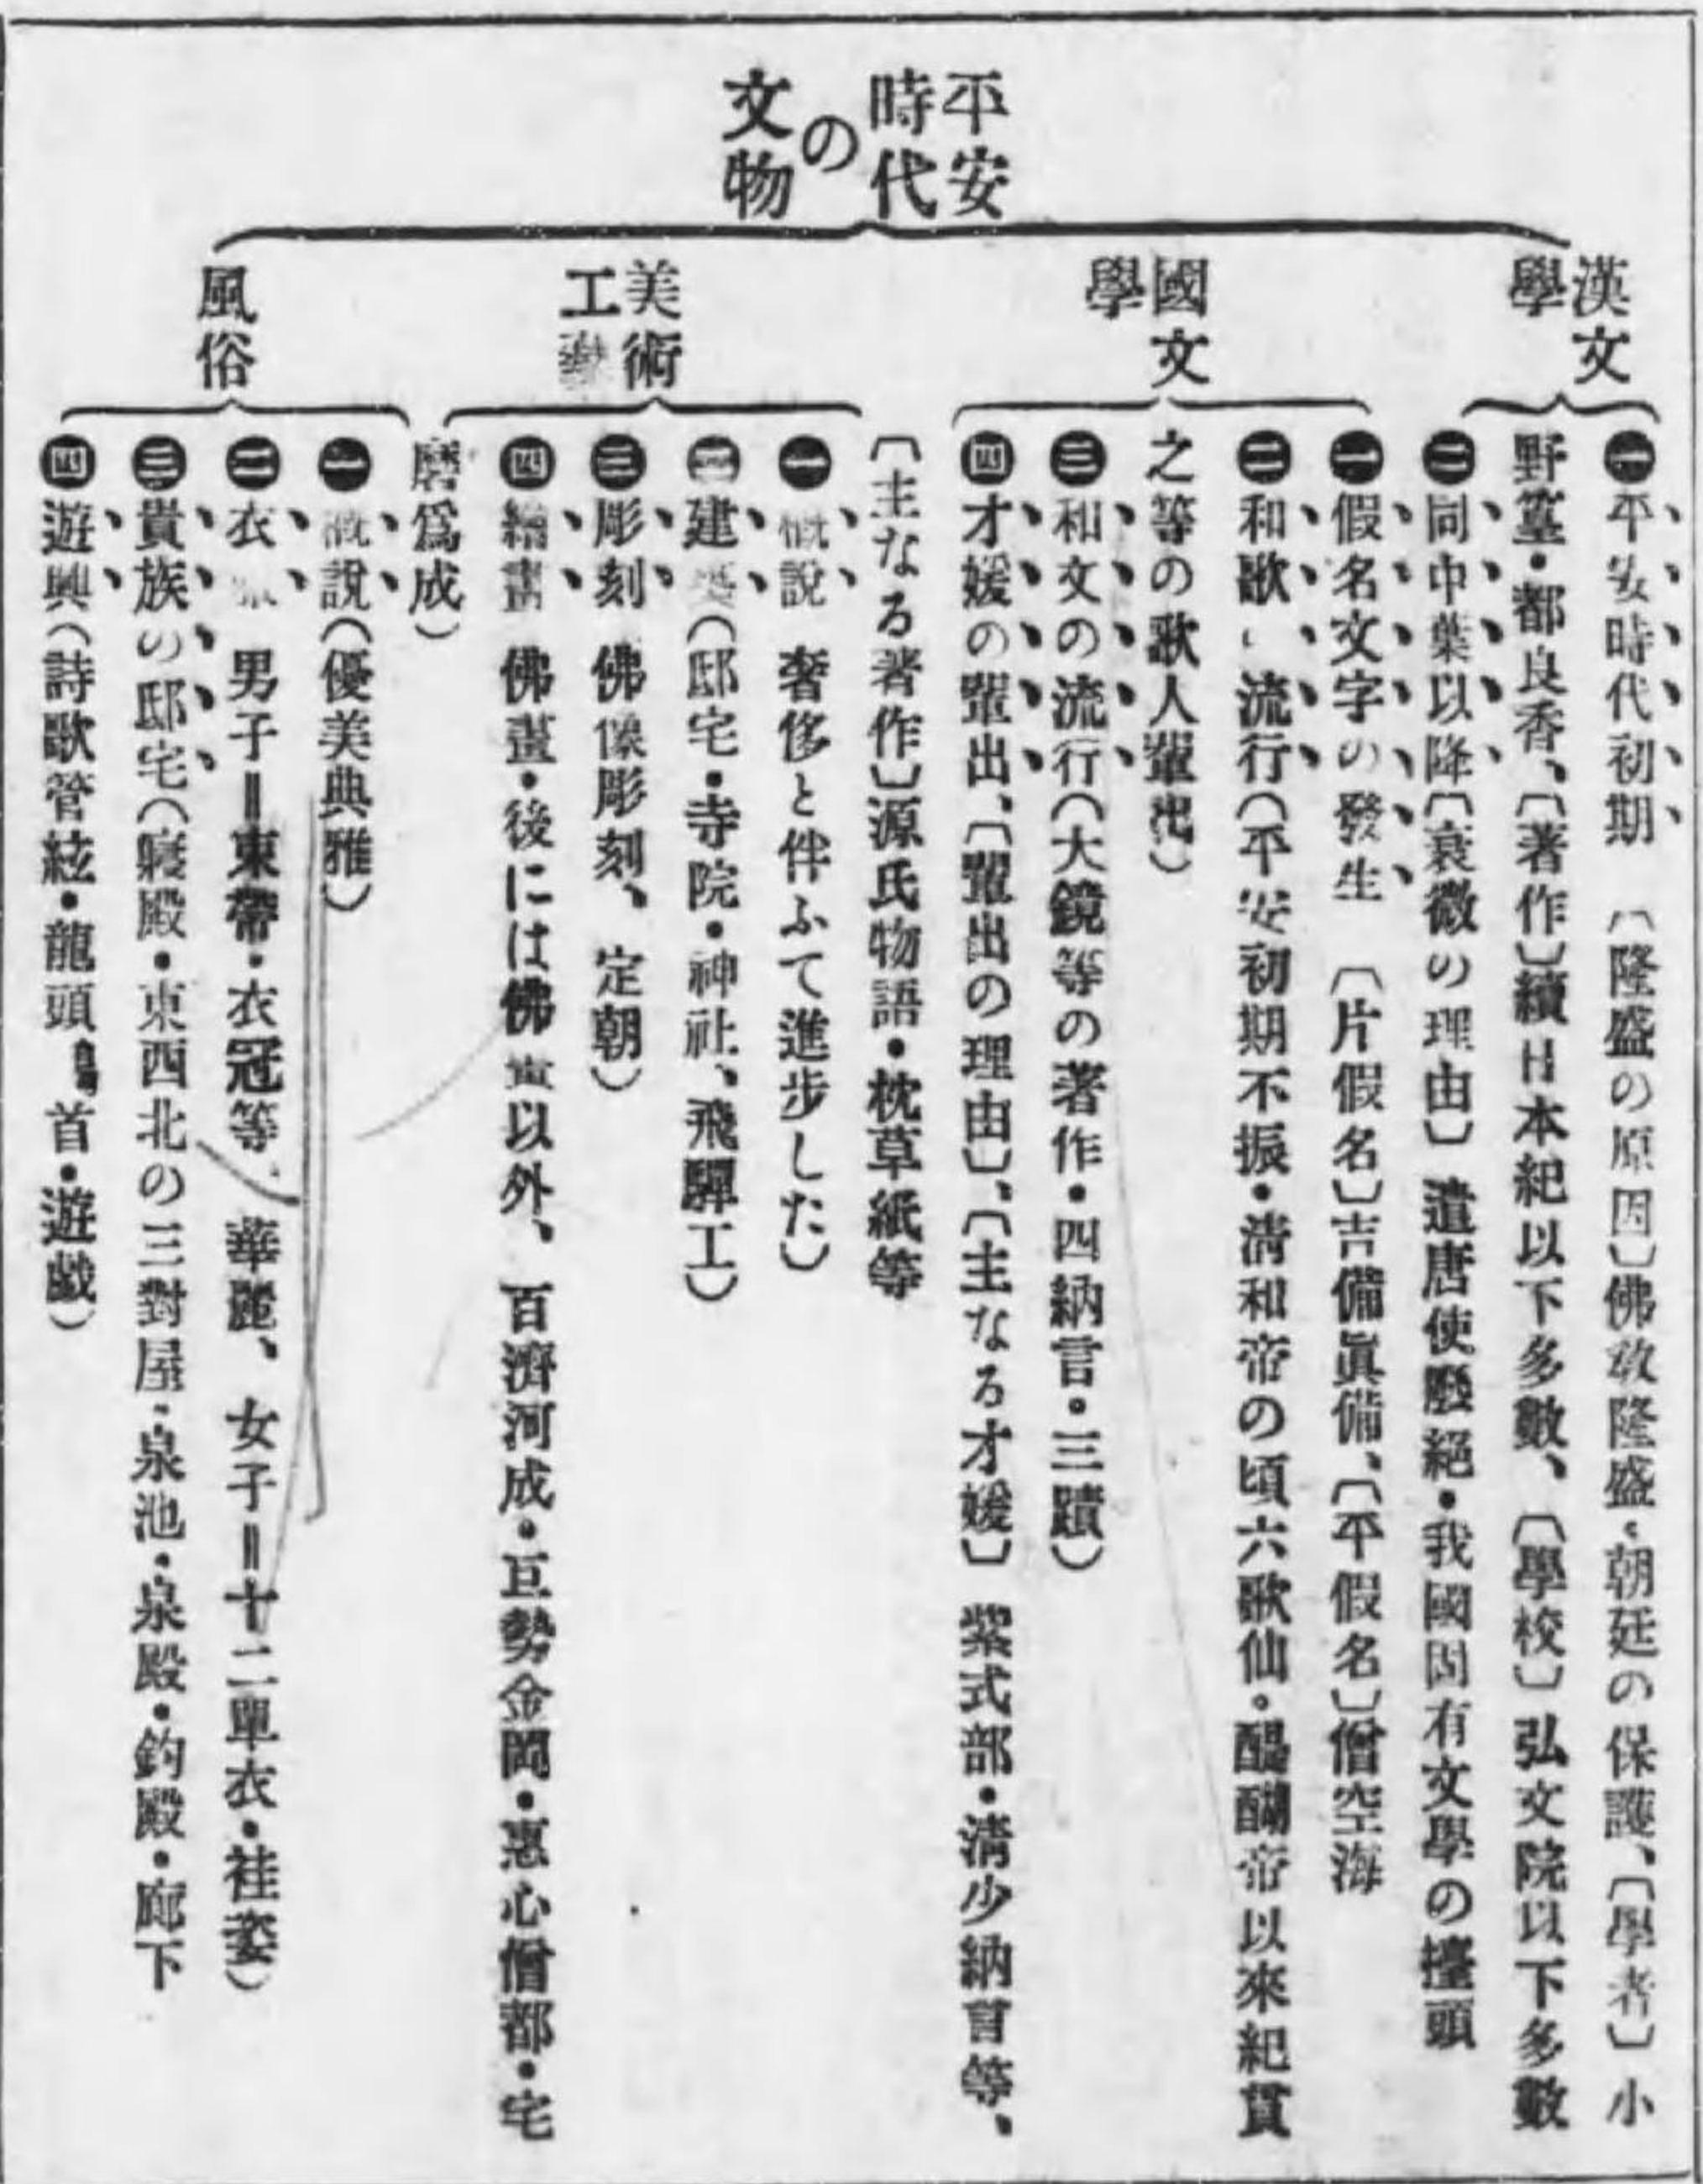 平安
時代
の
文物
漢文
學
㊀平安時代初期 〔隆盛の原因〕佛敎隆盛・朝廷の保護、〔學者〕小
野篁・都良香、〔著作〕續日本紀以下多數、〔學校〕弘文院以下多數
㊁同中葉以降〔衰微の理由〕遣唐使廢絕・我國固有文學の擡頭
國文
學
㊀假名文字の發生 〔片假名〕吉備眞備、〔平假名〕僧空海
㊁和歌の流行(平安初期不振・淸和帝の頃六歌仙・醍醐帝以來紀貫
之等の歌人輩出)
㊂和文の流行(大鏡等の著作・四納言・三蹟)
㊃才媛の輩出、〔輩出の理由〕、〔主なる才媛〕紫式部・淸少納言等、
〔主なる著作〕源氏物語・枕草紙等
美術
工藝
㊀槪說 奢侈と伴ふて進步した)
㊁建築(邸宅・寺院・神社、飛驒工)
㊂彫刻 佛像彫刻、定朝)
㊃繪畫 佛畫・後には佛畫以外、百濟河成・巨勢金岡・惠心僧都・宅
磨爲成)
風俗
㊀槪說(優美典雅)
㊁衣 男子=東帶・衣冠等、華麗、女子=十二單衣・袿姿)
㊂貴族の邸宅(寢殿・東西北の三對屋・泉池・泉殿・釣殿・廊下
㊃遊興(詩歌管絃・龍頭鷁首・遊戱)